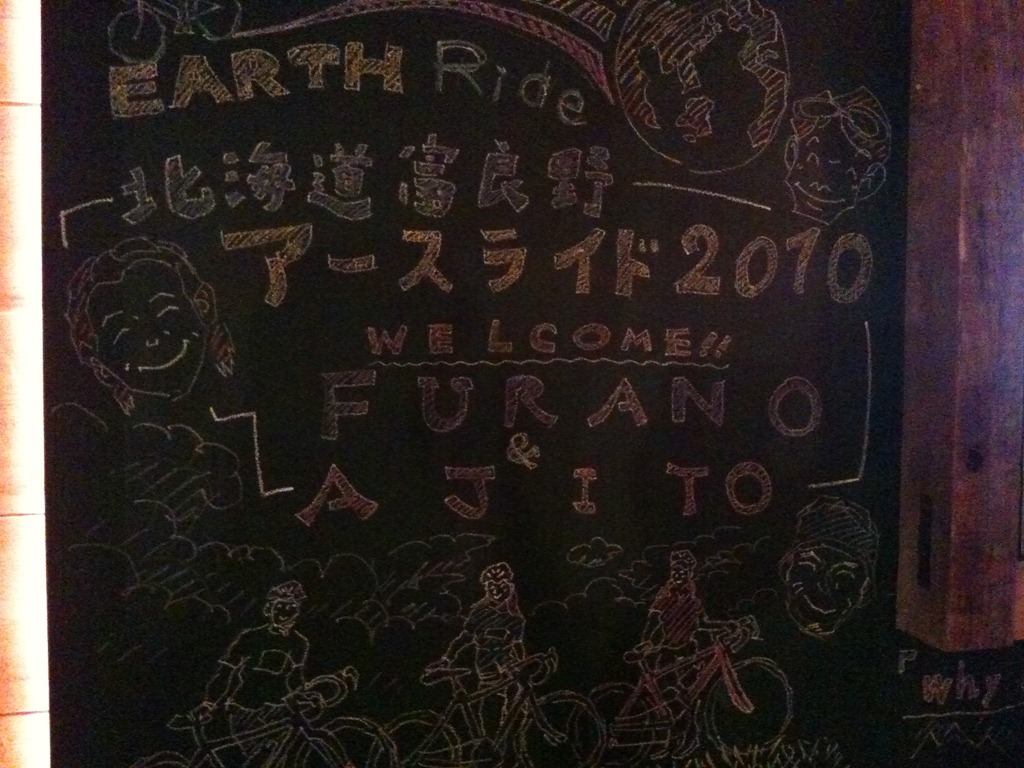 EARTH Ride
北海道富良野
アースライド2010
WELCOME!!
FURANO
&
AJITO
P
why